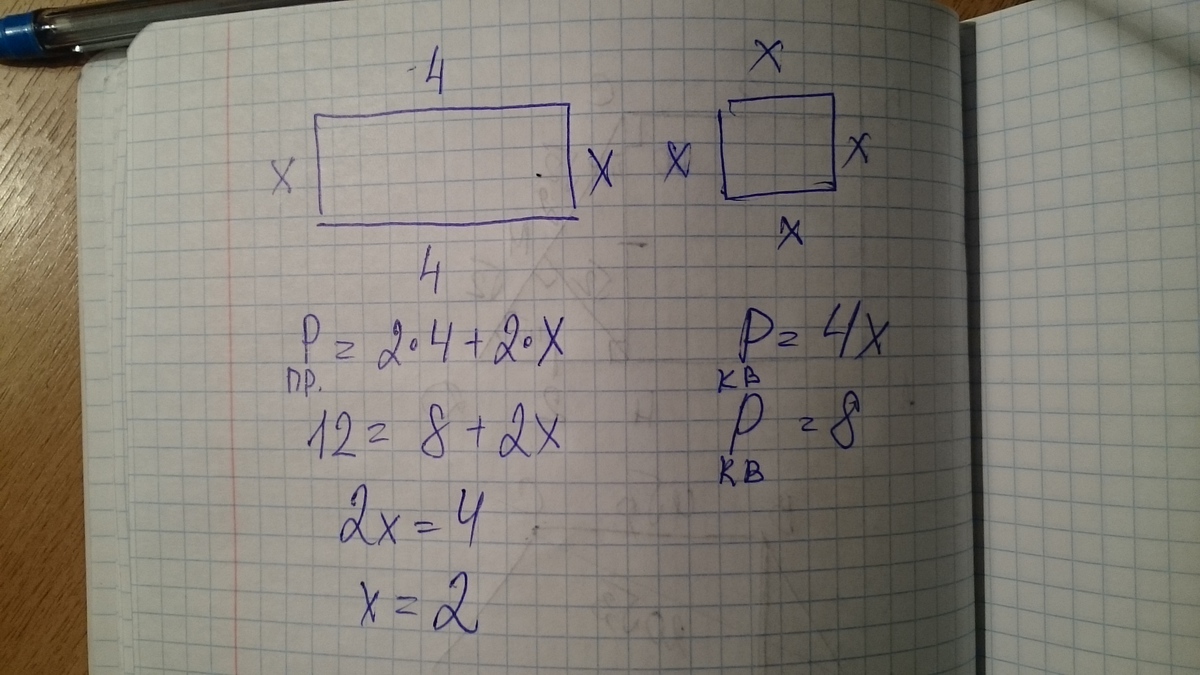 4
x
x
4
x
x
x
x
P пр. = 2·4+2·x
12 = 8+2x
2x=4
x=2
P кв = 4x
P кв = 8